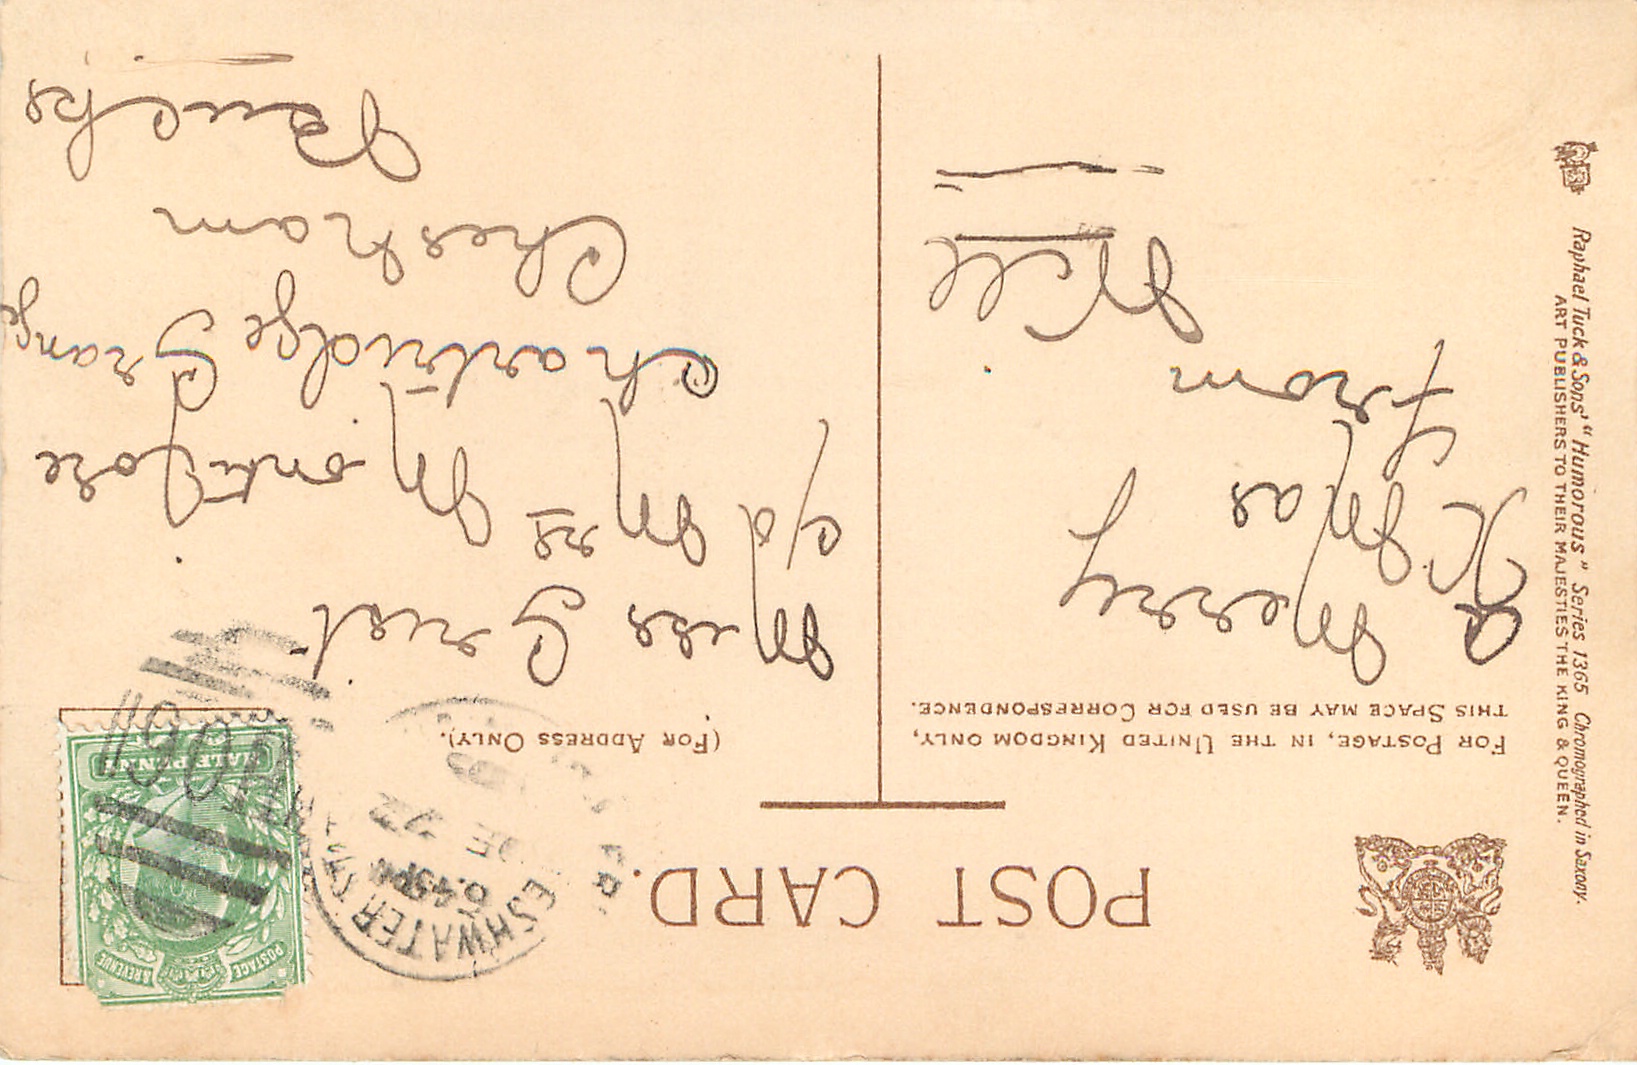 POST CARD.
FOR POSTAGE, IN THE UNITED KINGDOM ONLY,
THIS SPACE MAY BE USED FOR CORRESPONDENCE.
(FOR ADDRESS ONLY).
A Merry
X Mas
From
Nell
Miss Grist
c/o Mrs Montifore
Chartridge Grange
Chesham
Bucks
POSTAGE & REVENUE
HALF PENNY
ESHWATER
6.45PM
DE 23
906
Raphael Tuck & Sons' "Humorous" Series 1365 Chromographed in Saxony.
ART PUBLISHERS TO THEIR MAJESTIES THE KING & QUEEN.